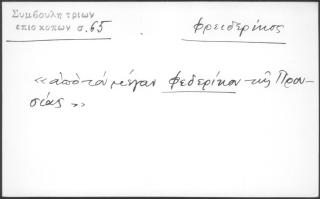 Συμβουλη τριων
επισκοπων σ.65
Φρειδερίκος
«ἀπὸ τὸν μέγαν Φεδερίκον τῆς Πρου-
σίας»